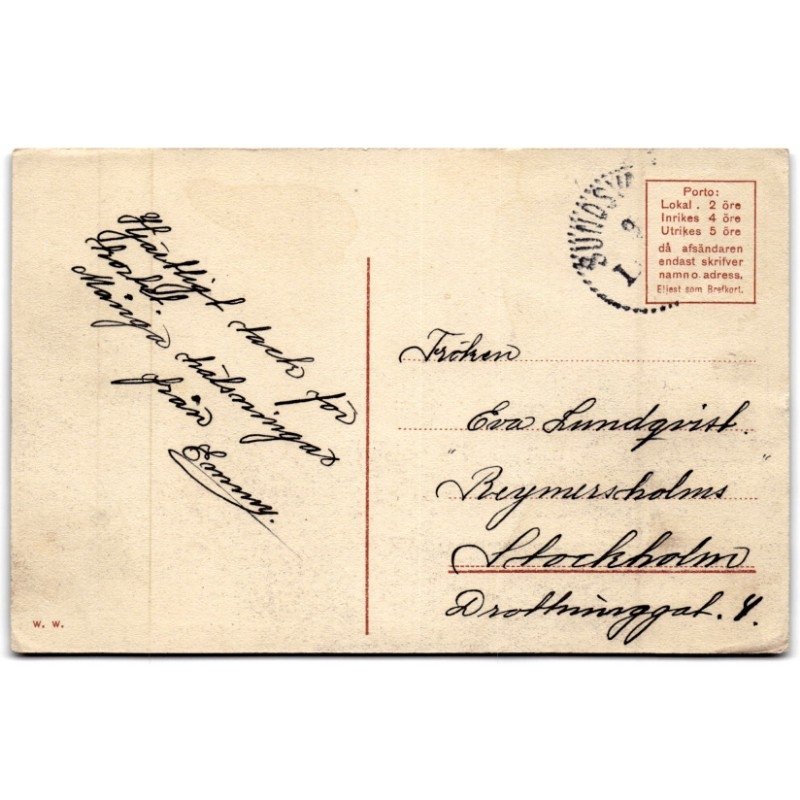 Hjärtligt tack för
kortet.
Många hälsningar
från
Emmy.
SUNDSV
9
1
Porto:
Lokal . 2 öre
Inrikes 4 öre
Utrikes 5 öre
då afsändaren
endast skrifver
namn o. adress.
Eljest som Brefkort.
Fröken
Eva Lundqvist.
Reymersholms
Stockholm
Drottninggat. 4.
W. W.